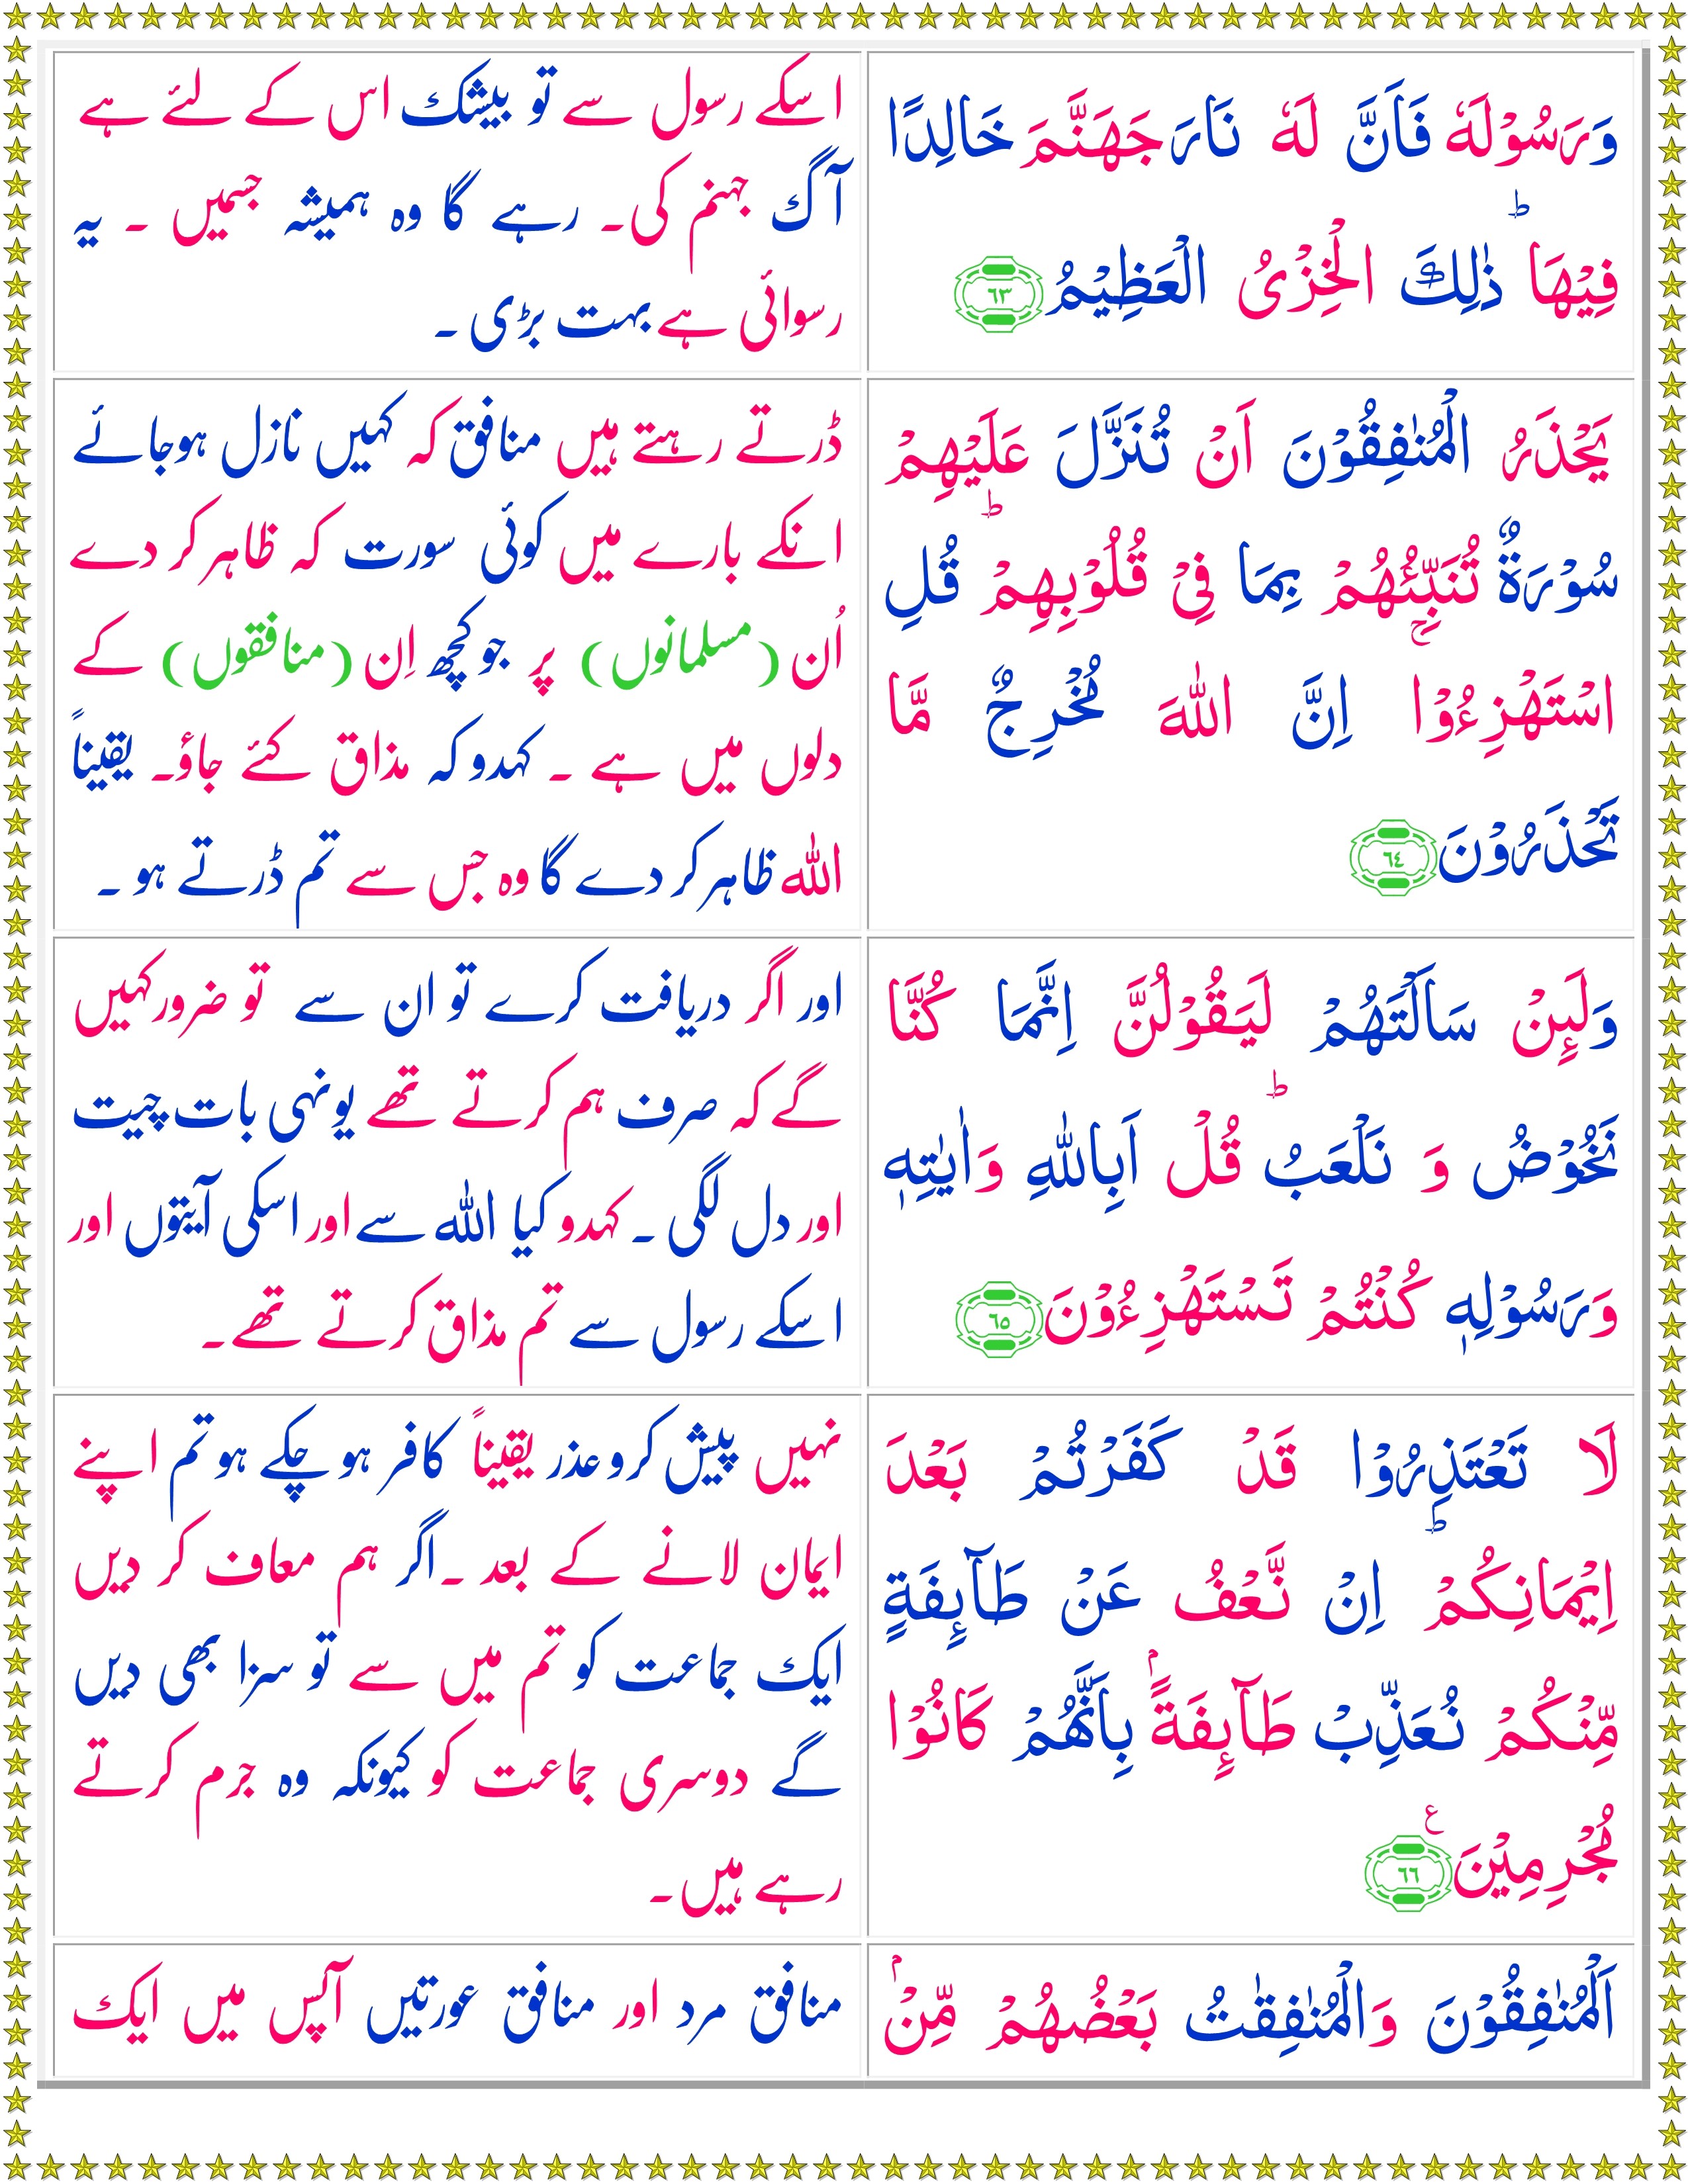 وَرَسُوْلَهٗ فَاَنَّ لَهٗ نَارَ جَهَنَّمَ خَالِدًا
فِيْهَا ؕ ذٰلِكَ الْخِزْىُ الْعَظِيْمُ ﴿٦٣﴾
اسکے رسول سے تو بیشک اس کے لئے ہے
آگ جہنم کی۔ رہے گا وہ ہمیشہ جسمیں ۔ یہ
رسوائی ہے بہت بڑی ۔
يَحْذَرُ الْمُنٰفِقُوْنَ اَنْ تُنَزَّلَ عَلَيْهِمْ
سُوْرَةٌ تُنَبِّئُهُمْ بِمَا فِىْ قُلُوْبِهِمْ ؕ قُلِ
اسْتَهْزِءُوْا ۚ اِنَّ اللّٰهَ مُخْرِجٌ مَّا
تَحْذَرُوْنَ ﴿٦٤﴾
ڈرتے رہتے ہیں منافق کہ کہیں نازل ہوجائے
انکے بارے میں کوئی سورت کہ ظاہر کر دے
اُن (مسلمانوں) پر جو کچھ اِن (منافقوں) کے
دلوں میں ہے ۔ کہدو کہ مذاق کئے جاؤ۔ یقیناً
اللہ ظاہر کر دے گا وہ جس سے تم ڈرتے ہو ۔
وَلَٮِٕنْ سَاَلْتَهُمْ لَيَـقُوْلُنَّ اِنَّمَا كُنَّا
نَخُوْضُ وَ نَلْعَبُ ؕ قُلْ اَبِاللّٰهِ وَاٰيٰتِهٖ
وَرَسُوْلِهٖ كُنْتُمْ تَسْتَهْزِءُوْنَ ﴿٦٥﴾
اور اگر دریافت کرے تو ان سے تو ضرور کہیں
گے کہ صرف ہم کرتے تھے یونہی بات چیت
اور دل لگی ۔ کہدو کیا اللہ سے اور اسکی آیتوں اور
اسکے رسول سے تم مذاق کرتے تھے۔
لَا تَعْتَذِرُوْا قَدْ كَفَرْتُمْ بَعْدَ
اِيْمَانِكُمْ ؕ اِنْ نَّـعْفُ عَنْ طَآٮِٕفَةٍ
مِّنْكُمْ نُـعَذِّبْ طَآٮِٕفَةًۢ بِاَنَّهُمْ كَانُوْا
مُجْرِمِيْنَ ﴿٦٦﴾ ع
نہیں پیش کرو عذر یقیناً کافر ہو چکے ہو تم اپنے
ایمان لانے کے بعد ۔ اگر ہم معاف کر دیں
ایک جماعت کو تم میں سے تو سزا بھی دیں
گے دوسری جماعت کو کیونکہ وہ جرم کرتے
رہے ہیں۔
اَلْمُنٰفِقُوْنَ وَالْمُنٰفِقٰتُ بَعْضُهُمْ مِّنْۢ
منافق مرد اور منافق عورتیں آپس میں ایک